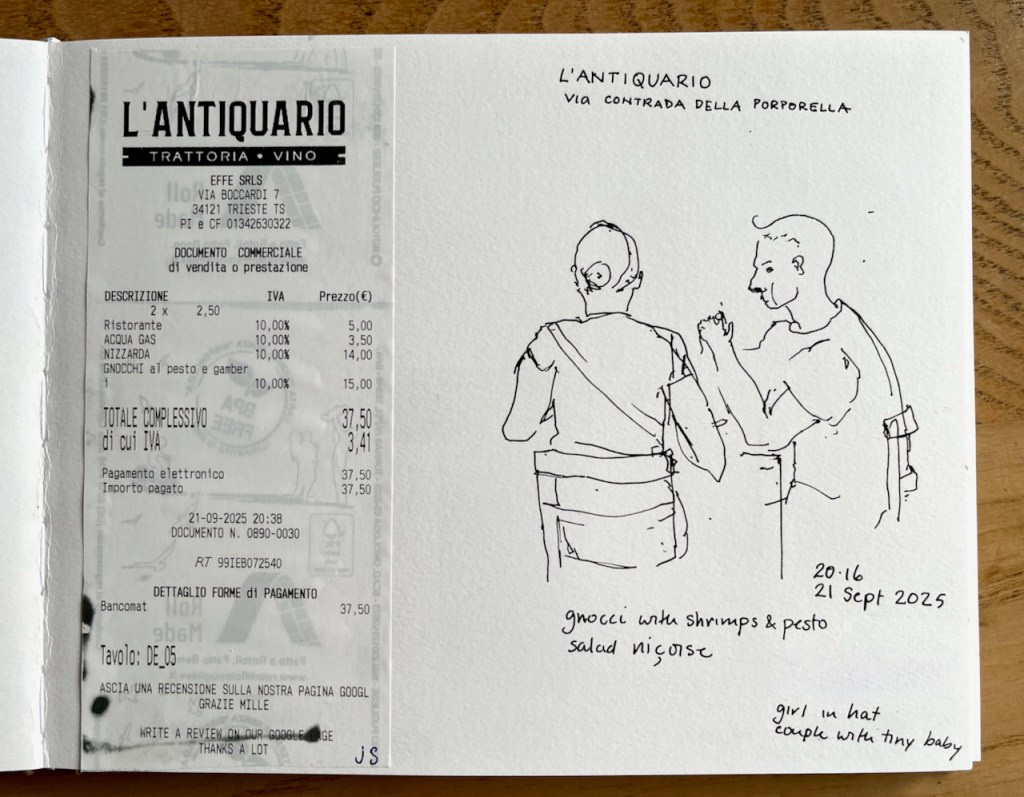 L'ANTIQUARIO
TRATTORIA • VINO
EFFE SRLS
VIA BOCCARDI 7
34121 TRIESTE TS
PI e CF 01342630322
DOCUMENTO COMMERCIALE
di vendita o prestazione
DESCRIZIONE IVA Prezzo(€)
2 x 2,50
Ristorante 10,00% 5,00
ACQUA GAS 10,00% 3,50
NIZZARDA 10,00% 14,00
GNOCCHI al pesto e gamber
i 10,00% 15,00
TOTALE COMPLESSIVO 37,50
di cui IVA 3,41
Pagamento elettronico 37,50
Importo pagato 37,50
21-09-2025 20:38
DOCUMENTO N. 0890-0030
RT 99IEB072540
DETTAGLIO FORME di PAGAMENTO
Bancomat 37,50
Tavolo: DE_05
ASCIA UNA RECENSIONE SULLA NOSTRA PAGINA GOOGL
GRAZIE MILLE
WRITE A REVIEW ON OUR GOOGLE PAGE
THANKS A LOT
JS
L'ANTIQUARIO
VIA CONTRADA DELLA PORPORELLA
20.16
21 Sept 2025
gnocci with shrimps & pesto
salad niçoise
girl in hat
couple with tiny baby